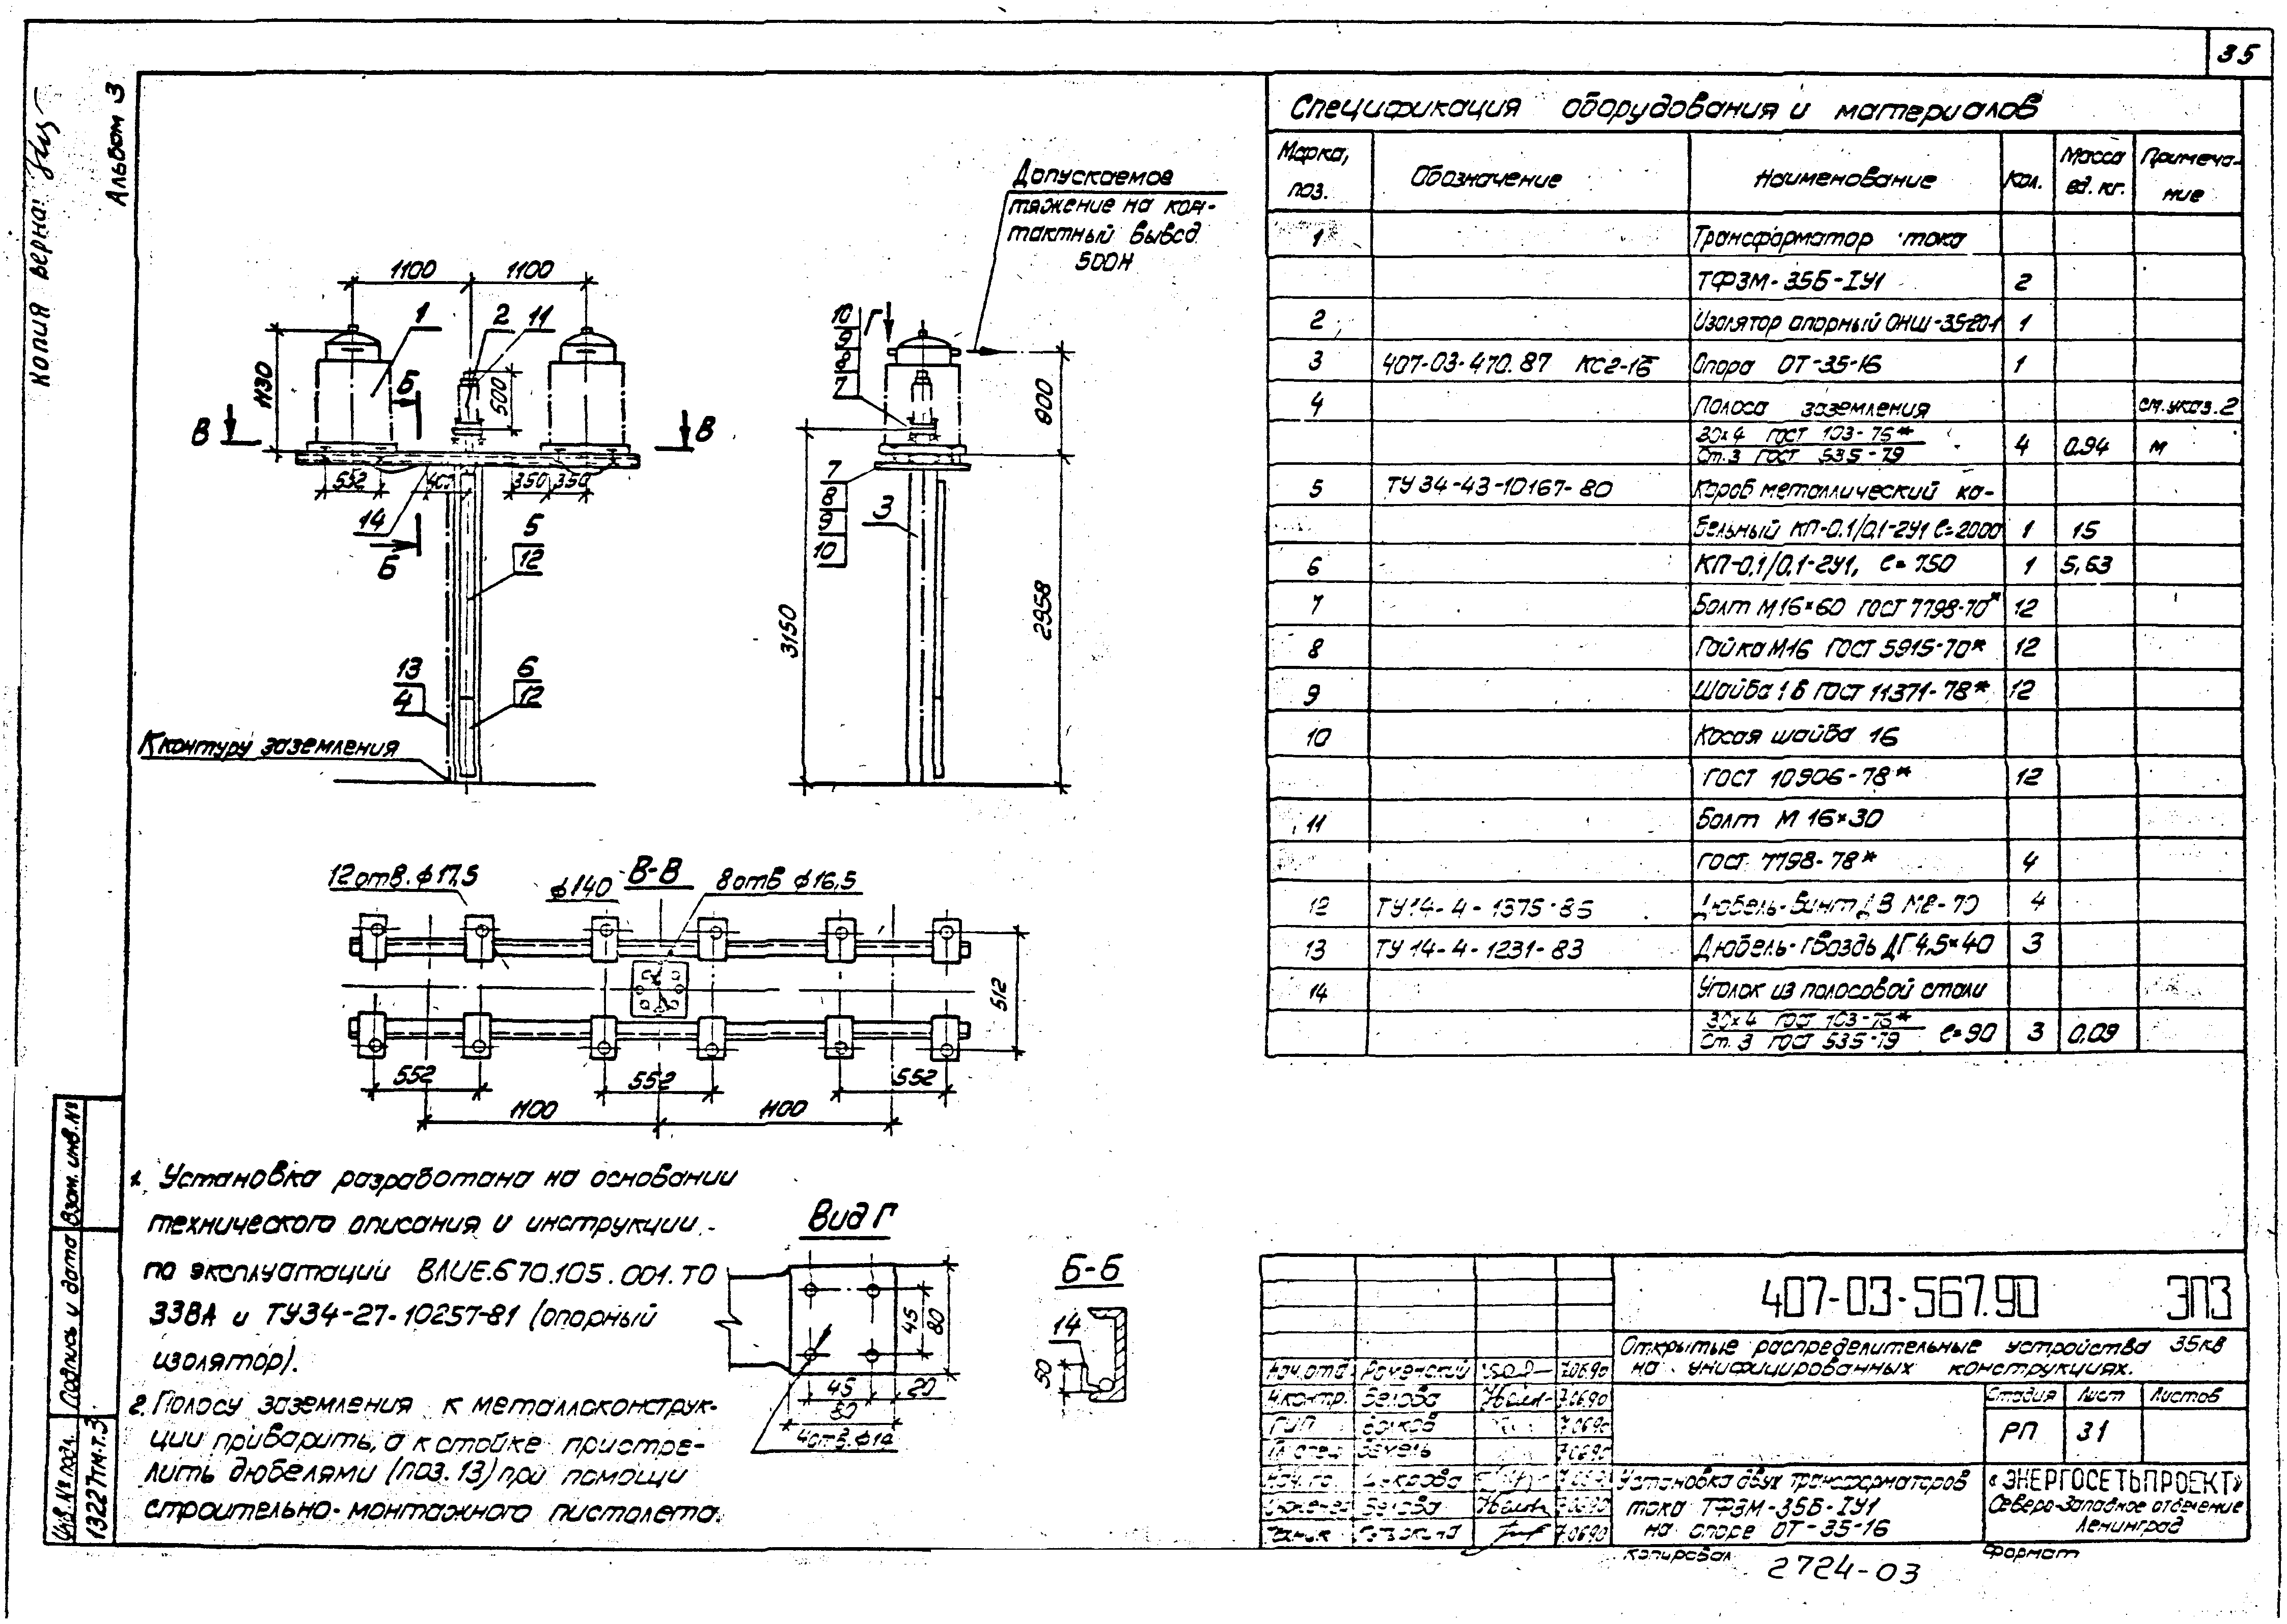 35
Копия верна:
Альбом 3
Спецификация оборудования и материалов
Марка, поз. Обозначение Наименование Кол. Масса ед. кг. Примечание
1 Трансформатор тока
ТФЗМ-35Б-IУ1 2
2 Изолятор опорный ОНШ-35-20-1 1
3 407-03-470.87 КС2-16 Опора ОТ-35-16 1
4 Полоса заземления см. указ. 2
30х4 ГОСТ 103-76*
Ст.3 ГОСТ 535-79 4 0.94 м
5 ТУ 34-43-10167-80 Короб металлический ка-
бельный КП-0.1/0.1-2У1 ℓ=2000 1 15
6 КП-0,1/0,1-2У1, ℓ=750 1 5,63
7 Болт М16×60 ГОСТ 7798-70* 12
8 Гайка М16 ГОСТ 5915-70* 12
9 Шайба 16 ГОСТ 11371-78* 12
10 Косая шайба 16
ГОСТ 10906-78* 12
11 Болт М 16×30
ГОСТ 7798-78* 4
12 ТУ 14-4-1375-85 Дюбель-винт ДВ М8-70 4
13 ТУ 14-4-1231-83 Дюбель-гвоздь ДГ 4,5×40 3
14 Уголок из полосовой стали
30х4 ГОСТ 103-76*
Ст. 3 ГОСТ 535-79 ℓ=90 3 0,09
1100 1100
1 2 11
1130
Б
500
В В
552 350 350
14
Б
5
12
13
4
6
12
К контуру заземления
Допускаемое
тяжение на кон-
тактный вывод
500Н
10
9
8
7
Г
7
8
9
10
3
800
3150
2958
В-В
12 отв. ф17,5
ф140
8 отв ф16,5
512
552 552 552
1100 1100
1. Установка разработана на основании
технического описания и инструкции
по эксплуатации ВЛИЕ.670.105.001.ТО
ЗЗВА и ТУ34-27-10257-81 (опорный
изолятор).
2. Полосу заземления к металлоконструк-
ции приварить, а к стойке пристре-
лить дюбелями (поз. 13) при помощи
строительно-монтажного пистолета.
Вид Г
45
80
45 20
80
4 отв. ф14
Б-Б
14
50
407-03-567.90 ЭП3
Открытые распределительные устройства 35кв
на унифицированных конструкциях.
Нач. отд Роменский 7.06.90
Н.контр. Белова 7.06.90
ГИП 7.06.90
7.06.90
Белова 7.06.90
7.06.90
Стадия Лист Листов
РП 31
Установка двух трансформаторов
тока ТФЗМ-35Б-IУ1
на опоре ОТ-35-16
«ЭНЕРГОСЕТЬПРОЕКТ»
Северо-Западное отделение
Ленинград
Копировал
2724-03
Формат
Взам. инв. №
Подпись и дата
Инв. № подл.
13227тм-т.3